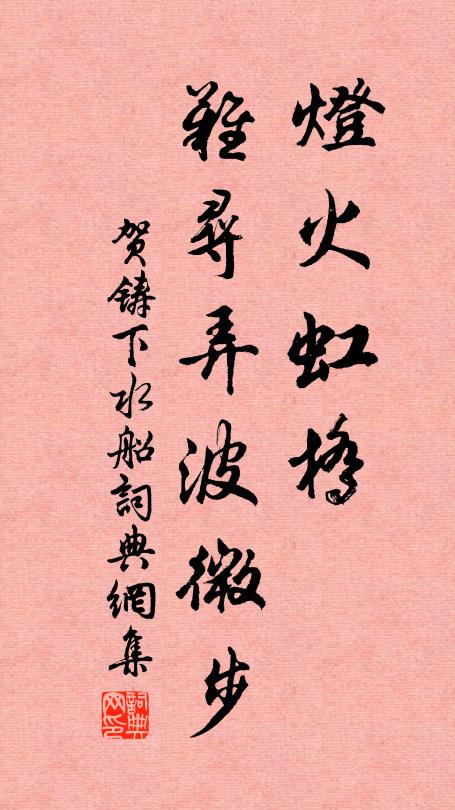 燈火虹橋
難尋弄波微步
贺鑄下水船詞典網集
詞典网印